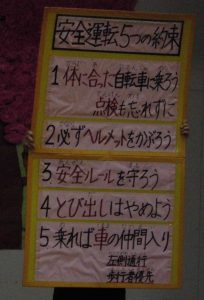 安全運転5つの約束
1 体に合った自転車に乗ろう
点検も忘れずに
2 必ずヘルメットをかぶろう
3 安全ルールを守ろう
4 とび出しはやめよう
5 乗れば車の仲間入り
左側通行
歩行者優先